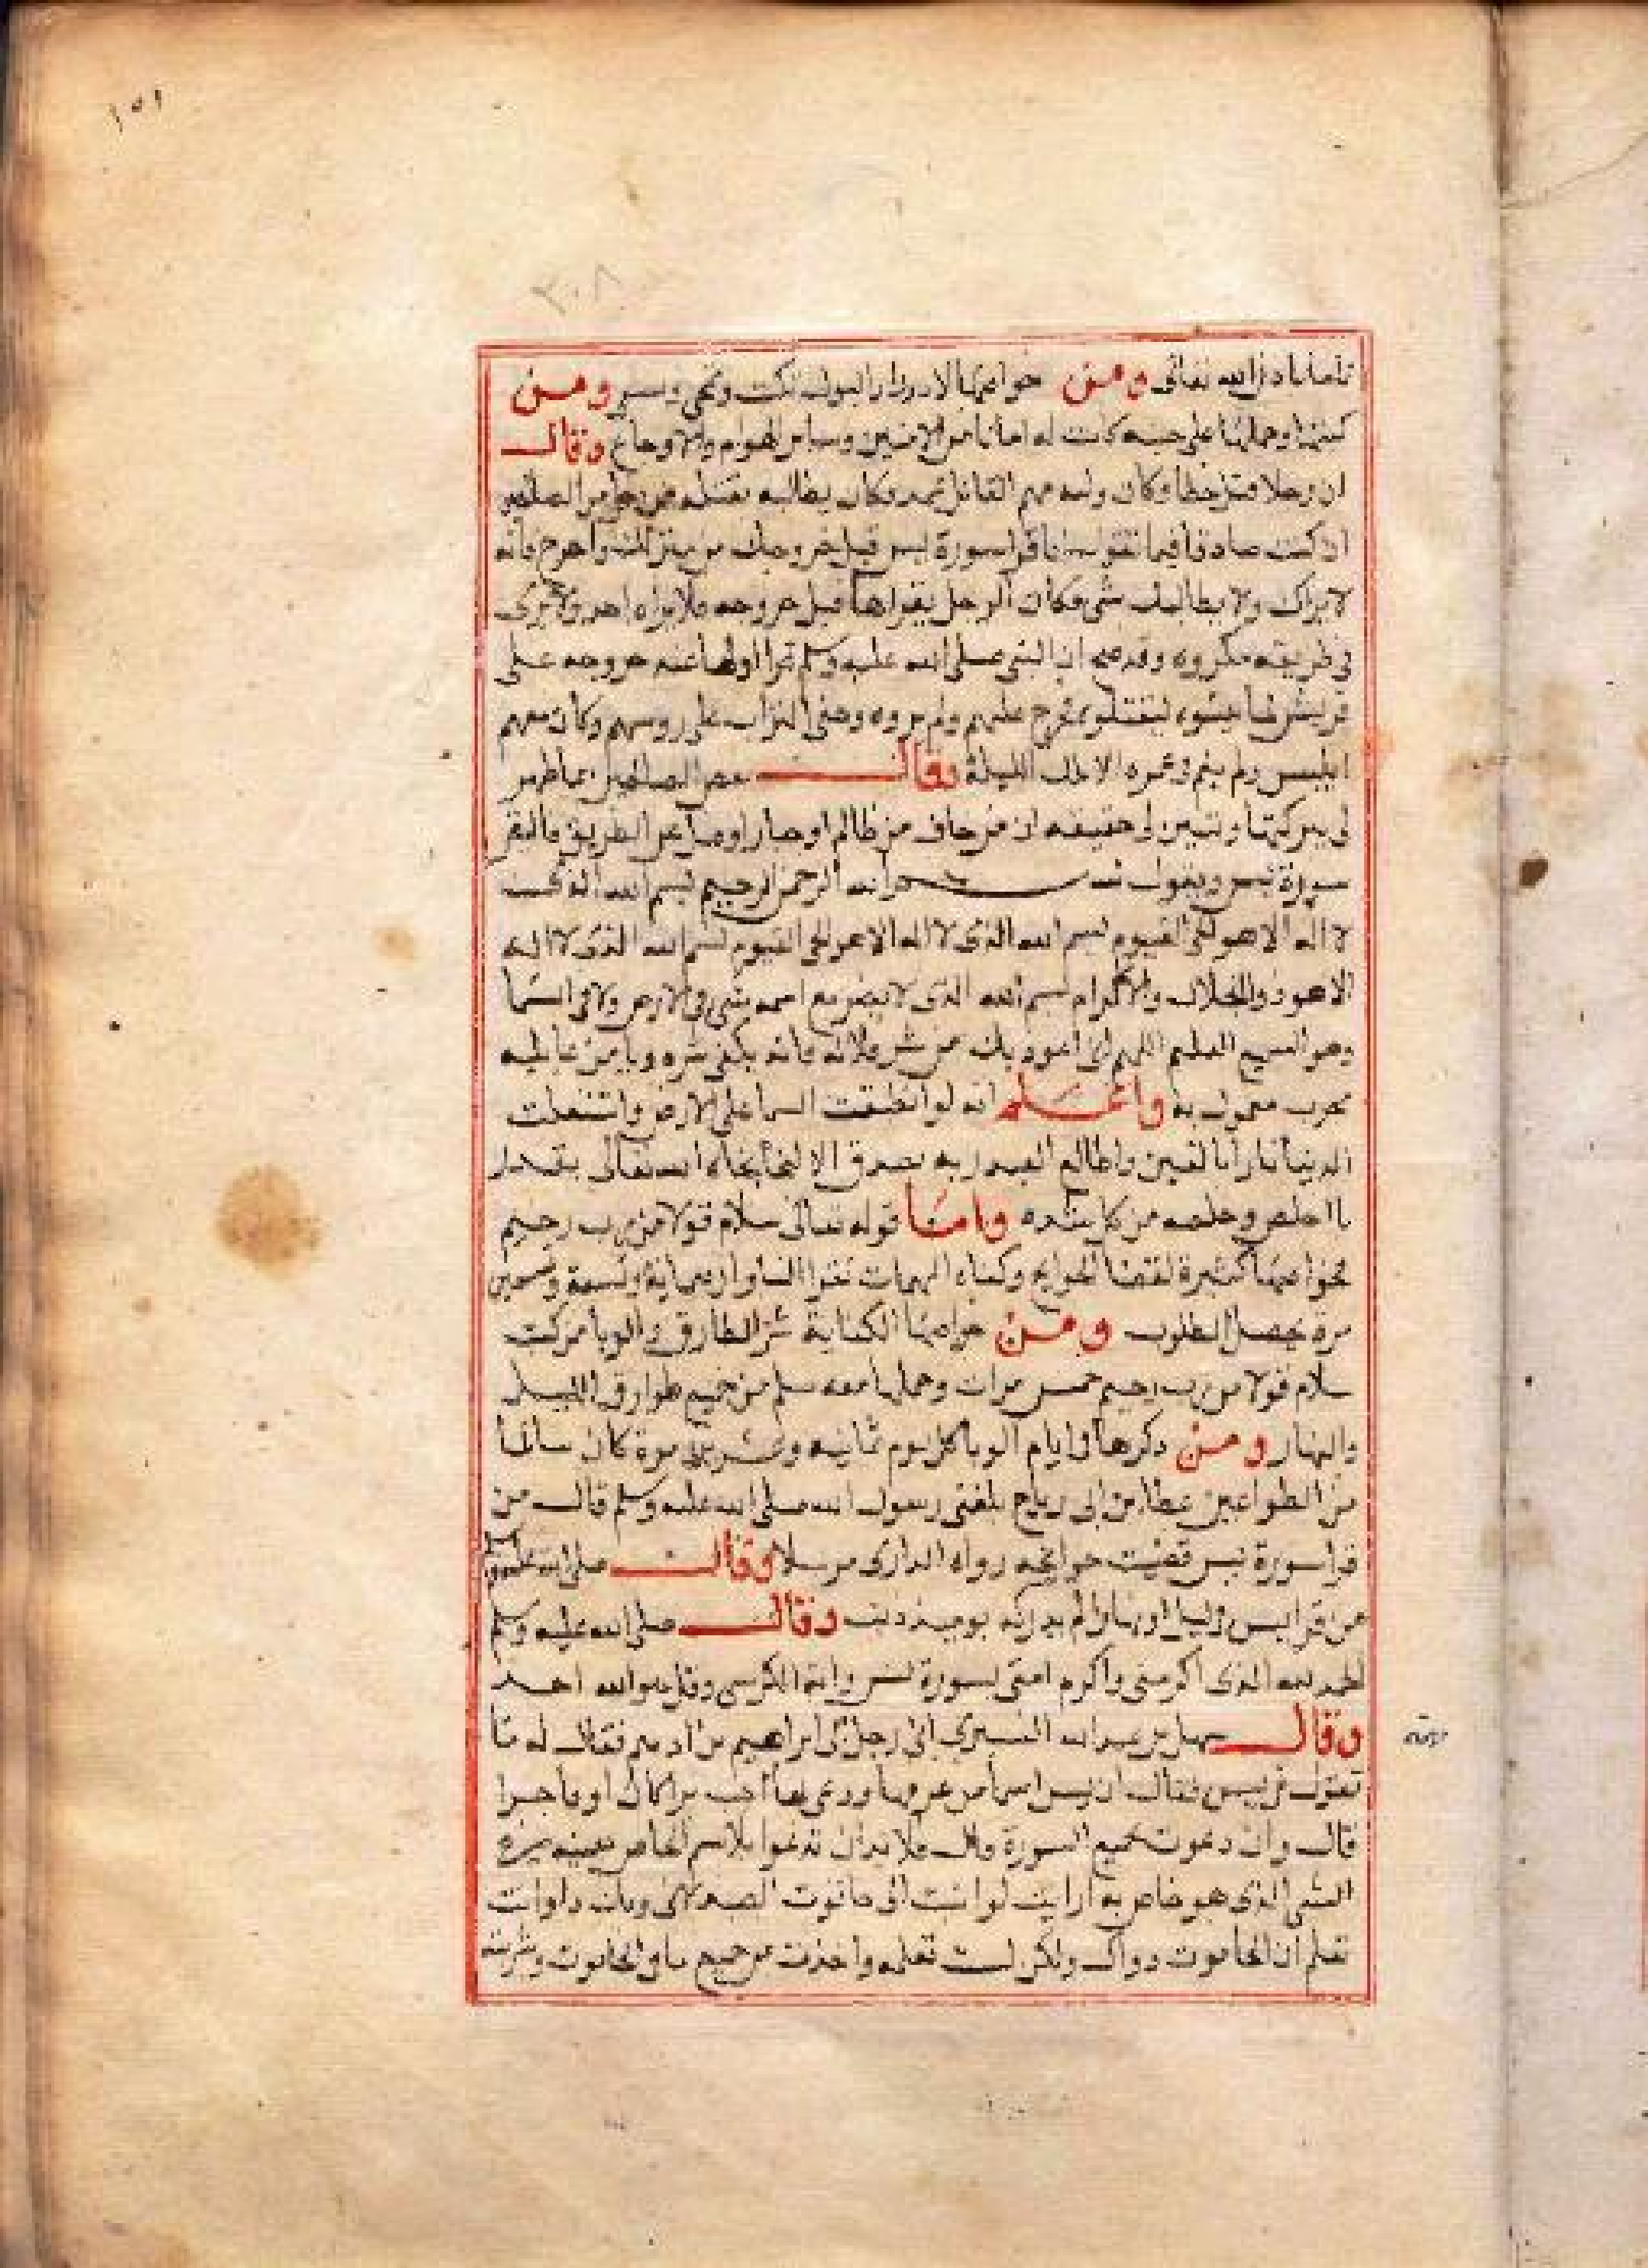 ١٥١
٢٠٨
باذن الله تعالى ومن خواصها لادرار البول تكتب وتمحى وسير ومن
كتبها وحملها على جنبه كانت له امانا من العين وساير الهوام والاوجاع وقال
ان رجلا قتل خطا وكان ولد القاتل وكان يطالبه بقتله بعض الصالحين
ان كنت صادقا فيما تقول فاقرا سورة يس قبل خروجك من منزلك واخرج فانه
لا يراك ولا يطالبك بشي فكان الرجل يقراها قبل خروجه فلا يراه احد ولا يرى
في طريقه مكروه وقد صح ان النبي صلى الله عليه وسلم قرا اولها عند خروجه على
قريش لما بيتوه ليقتلوه فخرج عليهم ولم يروه وحثى التراب على روسهم وكان معهم
ابليس ولم ينم في عمره الا تلك الليلة وقال بعض الصالحين مما ظهر
لي ببركتها وتبين لي حقيقه ان من خاف من ظالم او جبار الطريق فاليقر
سورة يس ويقول بسم الله الرحمن الرحيم بسم الله الذي
لا اله الا هو الحي القيوم بسم الله الذي لا اله الا هو الحي القيوم بسم الله الذي لا اله
الا هو ذو الجلال والاكرام بسم الله الذي لا يضر مع اسمه شي في الارض ولا في السما
وهو السميع العليم اللهم اني اعوذ بك من شر فلان فانه يكفى شره ويامن غايلته
مجرب معمول به واعلم انه لو انطبقت السما على الارض واشتعلت
الدنيا نارا العبد ربه بصدق الا لنجا نجاه الله تعالى بقدر
ما اخلص وخلصه من كل شده واما قوله تعالى سلام قولا من رب رحيم
فخواصها كثيرة لقضا الحوايج وكفاء المهمات تقرا الفا واربعماية وتسعة وتسعين
مرة يحصل المطلوب ومن خواصها الكفاية شر الطارق والوبا من كتب
سلام قولا من رب رحيم خمس مرات وحملها معه سلم من جميع طوارق الليل
والنهار ومن ذكرها في ايام الوبا كل يوم ثمانيه وعشرين مرة كان سالما
من الطواعين عطا بن ابي رباح بلغني رسول الله صلى الله عليه وسلم قال من
قرا سورة يس قضيت حوايجه رواه الدارمي مرسلا وقال صلى الله عليه وسلم
من قرا يس ليلا او نهارا لم يدركه يوميذ ذنب وقال صلى الله عليه وسلم
الحمد لله الذي اكرمني واكرم امتي بسورة يس واية الكرسي وقل هو الله احد
وقال سهل بن عبد الله التستري اتى رجل الى ابراهيم بن ادهم فقال له ما
تقول في يس فقال ان يس اسما من عرفها ودعى بها اجيب برا كان او فاجرا
قال وان دعوت بجميع السورة قال فلا بد ان تدعوا بالاسم الخاص بعينه
الشي الذي هو خاص به ارايت لو اتيت الى حانوت الصيدلاني وبك دا وانت
تعلم ان الحانوت دواك ولكن لست تعلمه واخذت من جميع ما في الحانوت وشربته